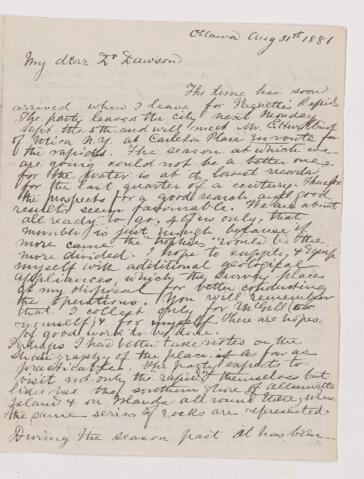 Ottawa Aug 31st 1881
My dear Dr Dawson
The time has soon
arrived when I leave for Paquettes Rapids
The party leaves the city next Monday
Sept the 5th and will meet Mr
of Utica N.Y. at Carleton Place en route for
the rapids. The season at which we
are going could not be a better one
for the water is at its lowest record
for the last quarter of a century. Therefore
the prospects for a good search and good
results seem favorable. We are about
all ready to go, 4 of us only, that
number is just enough because if
more came the trophies would be the
more divided. I hope to supply & equip
myself with additional geological
appliances which the survey places
at my disposal for better conducting
the operations. You will remember
that I collect only for McGill (
yourself) & for myself. There are hopes
for good work to be done.
Perhaps I had better take notes on the
stratigraphy of the place as far as
practicable. The party expects to
visit not only the rapids themselves but
likewise the southern shore of Allumette
Island & on Islands all round there, where
the same series of rocks are represented.
During the season past it has been